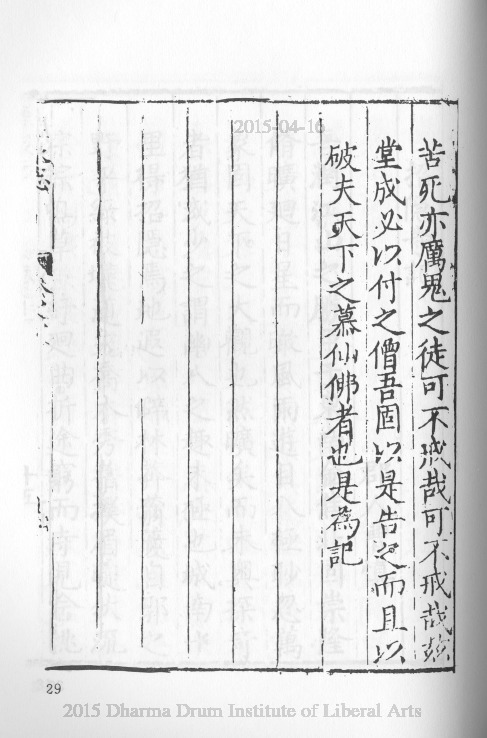 2015-04-16
苦死亦厲鬼之徒可不戒哉可不戒哉茲
堂成必以付之僧吾固以是告之而且以
破夫天下之慕仙佛者也是為記
志
29
2015 Dharma Drum Institute of Liberal Arts